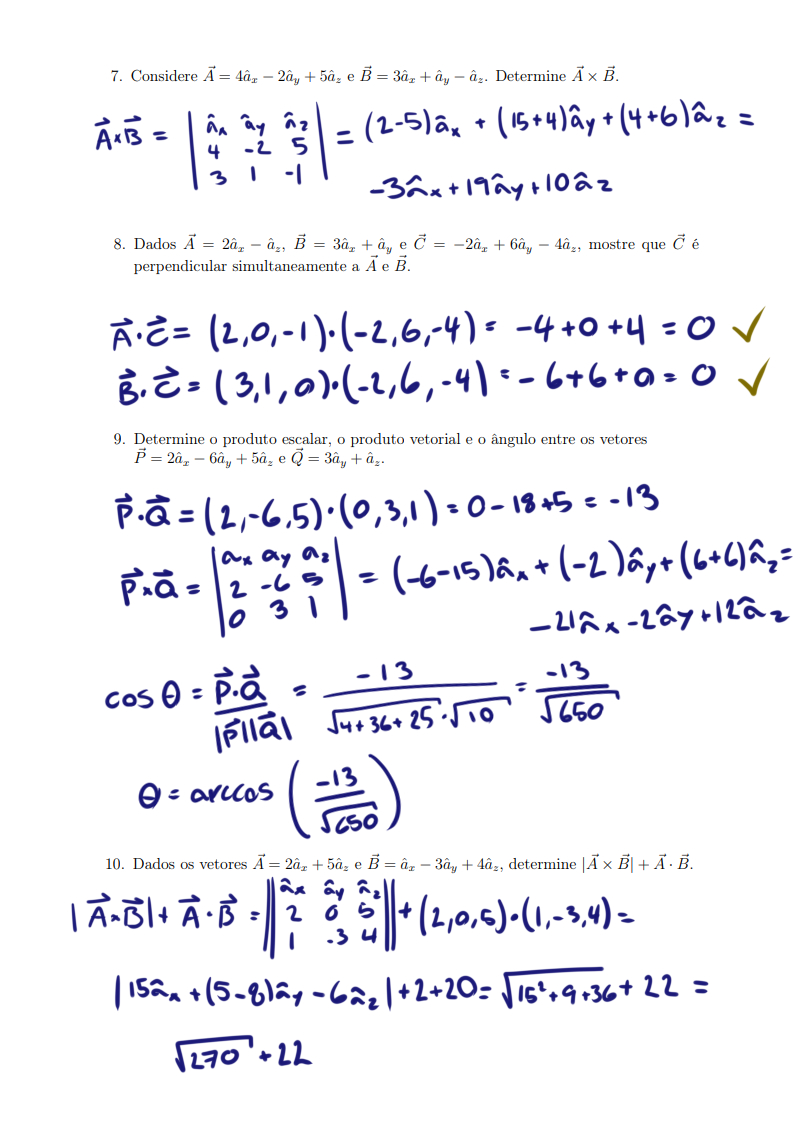 7. Considere A⃗ = 4âₓ − 2âᵧ + 5â_z e B⃗ = 3âₓ + âᵧ − â_z. Determine A⃗ × B⃗.
A⃗×B⃗ = | âₓ âᵧ â_z | = (2-5)âₓ + (15+4)âᵧ + (4+6)â_z =
4 -2 5
3 1 -1
-3âₓ + 19âᵧ + 10â_z
8. Dados A⃗ = 2âₓ − â_z, B⃗ = 3âₓ + âᵧ e C⃗ = −2âₓ + 6âᵧ − 4â_z, mostre que C⃗ é
perpendicular simultaneamente a A⃗ e B⃗.
A⃗·C⃗ = (2,0,-1)·(-2,6,-4) = -4+0+4 = 0 ✓
B⃗·C⃗ = (3,1,0)·(-2,6,-4) = -6+6+0 = 0 ✓
9. Determine o produto escalar, o produto vetorial e o ângulo entre os vetores
P⃗ = 2âₓ − 6âᵧ + 5â_z e Q⃗ = 3âᵧ + â_z.
P⃗·Q⃗ = (2,-6,5)·(0,3,1) = 0-18+5 = -13
P⃗×Q⃗ = | aₓ aᵧ a_z | = (-6-15)âₓ + (-2)âᵧ + (6+6)â_z =
2 -6 5
0 3 1
-21âₓ - 2âᵧ + 12â_z
cos θ = P⃗·Q⃗ / |P⃗||Q⃗| = -13 / √4+36+25·√10 = -13 / √650
θ = arccos (-13 / √650)
10. Dados os vetores A⃗ = 2âₓ + 5â_z e B⃗ = âₓ − 3âᵧ + 4â_z, determine |A⃗ × B⃗| + A⃗ · B⃗.
|A⃗×B⃗| + A⃗·B⃗ = || âₓ âᵧ â_z || + (2,0,5)·(1,-3,4) =
2 0 5
1 -3 4
|15âₓ + (5-8)âᵧ - 6â_z| + 2 + 20 = √15²+9+36 + 22 =
√270 + 22